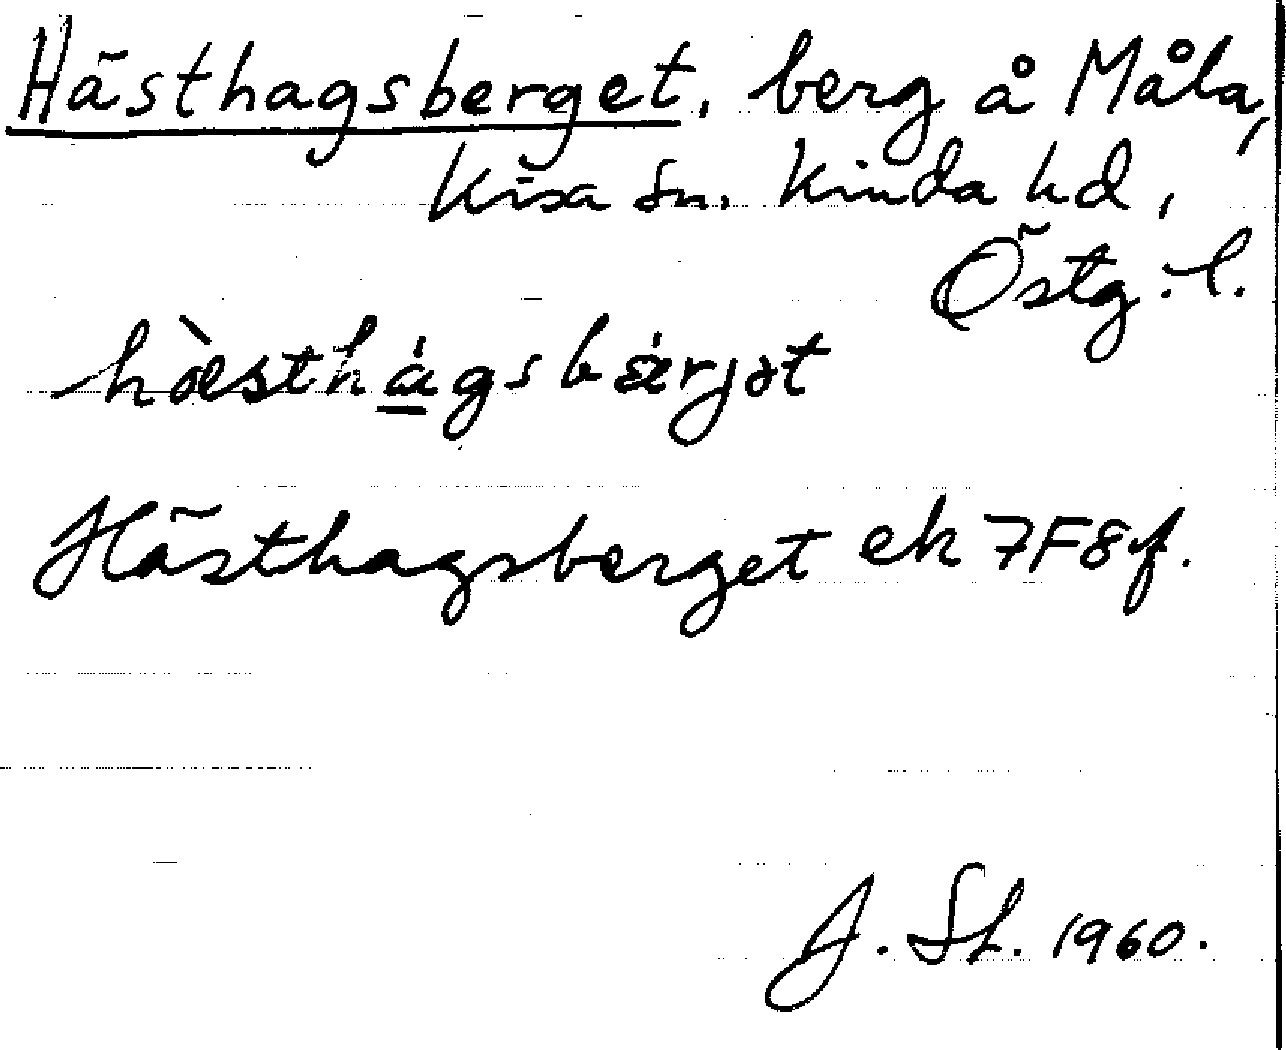 Hästhagsberget, berg å Måla,
Kisa sn. Kinda hd,
Östg. l.
hæ̀sthágsbǽrjət
Hästhagsberget ek 7F8f.
J. St. 1960.